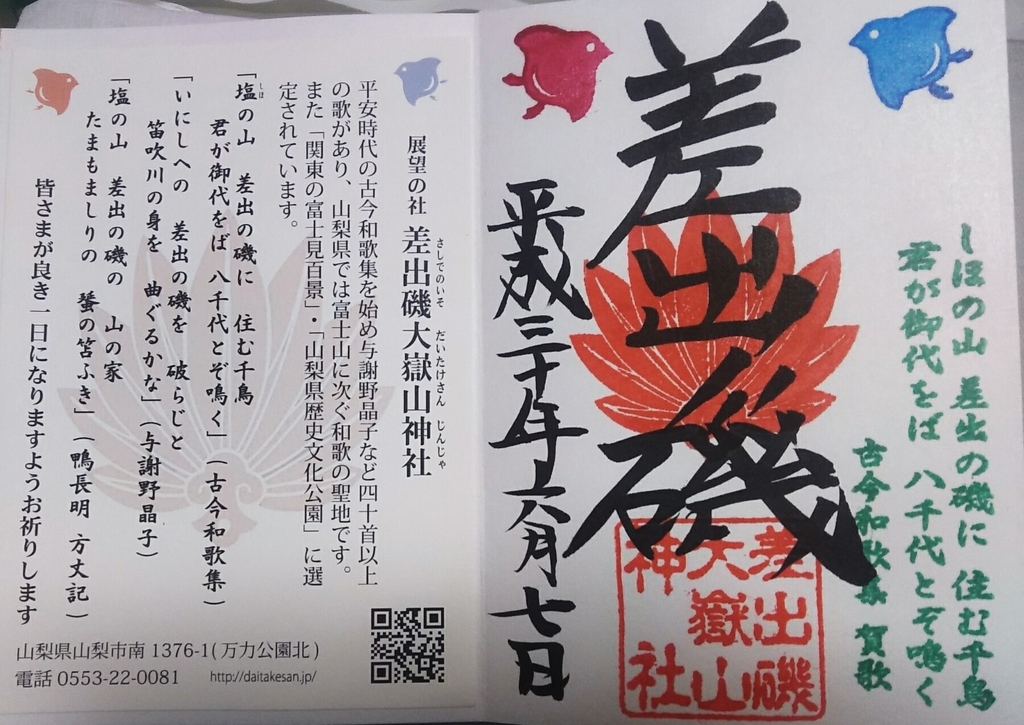 しほの山 差出の磯に 住む千鳥
君が御代をば 八千代とぞ鳴く
古今和歌集 賀歌
差出磯
差出磯
大嶽山
神社
平成三十年六月七日
展望の社 差出磯大嶽山神社
さしでのいそ だいたけさん じんじゃ
平安時代の古今和歌集を始め与謝野晶子など四十首以上
の歌があり、山梨県では富士山に次ぐ和歌の聖地です。
また「関東の富士見百景」・「山梨県歴史文化公園」に選
定されています。
「塩の山 差出の磯に 住む千鳥
しほ
君が御代をば 八千代とぞ鳴く」(古今和歌集)
「いにしへの 差出の磯を 破らじと
笛吹川の身を 曲ぐるかな」(与謝野晶子)
「塩の山 差出の磯の 山の家
たまもましりの 蜑の笘ふき」(鴨長明 方丈記)
皆さまが良き一日になりますようお祈りします
山梨県山梨市南 1376-1(万力公園北)
電話 0553-22-0081 http://daitakesan.jp/